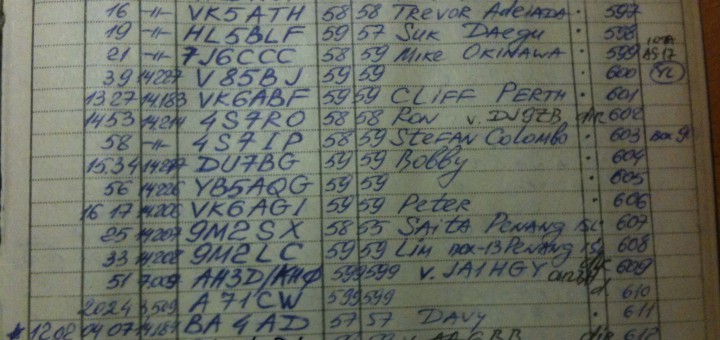 16 -"- VK5ATH 58 58 Trevor 597
19 -"- HL5BLF 59 57 Suk Daegu 598
21 -"- 7J6CCC 58 59 Mike OKINAWA 599
39 V85BJ 59 59 600
1327 14.183 VK6ABF 59 59 CLIFF PERTH 601
1453 14.214 4S7RO 58 58 Ron v. DJ9ZB dir 602
58 -"- 4S7IP 58 59 Stefan Colombo 603
15.34 DU7BG 59 59 Bobby 604
56 YB5AQG 59 59 605
16 17 VK6AGI 59 59 Peter 606
25 9M2SX 58 55 Saita Penang 607
33 9M2LC 59 59 Lim Box-13 Penang 608
51 7.009 AH3D/AH0 599 599 v. JA1HGY 609
2024 A71CW 599 599 d. 610
1208 04 07 BA4AD 57 57 Davy 611